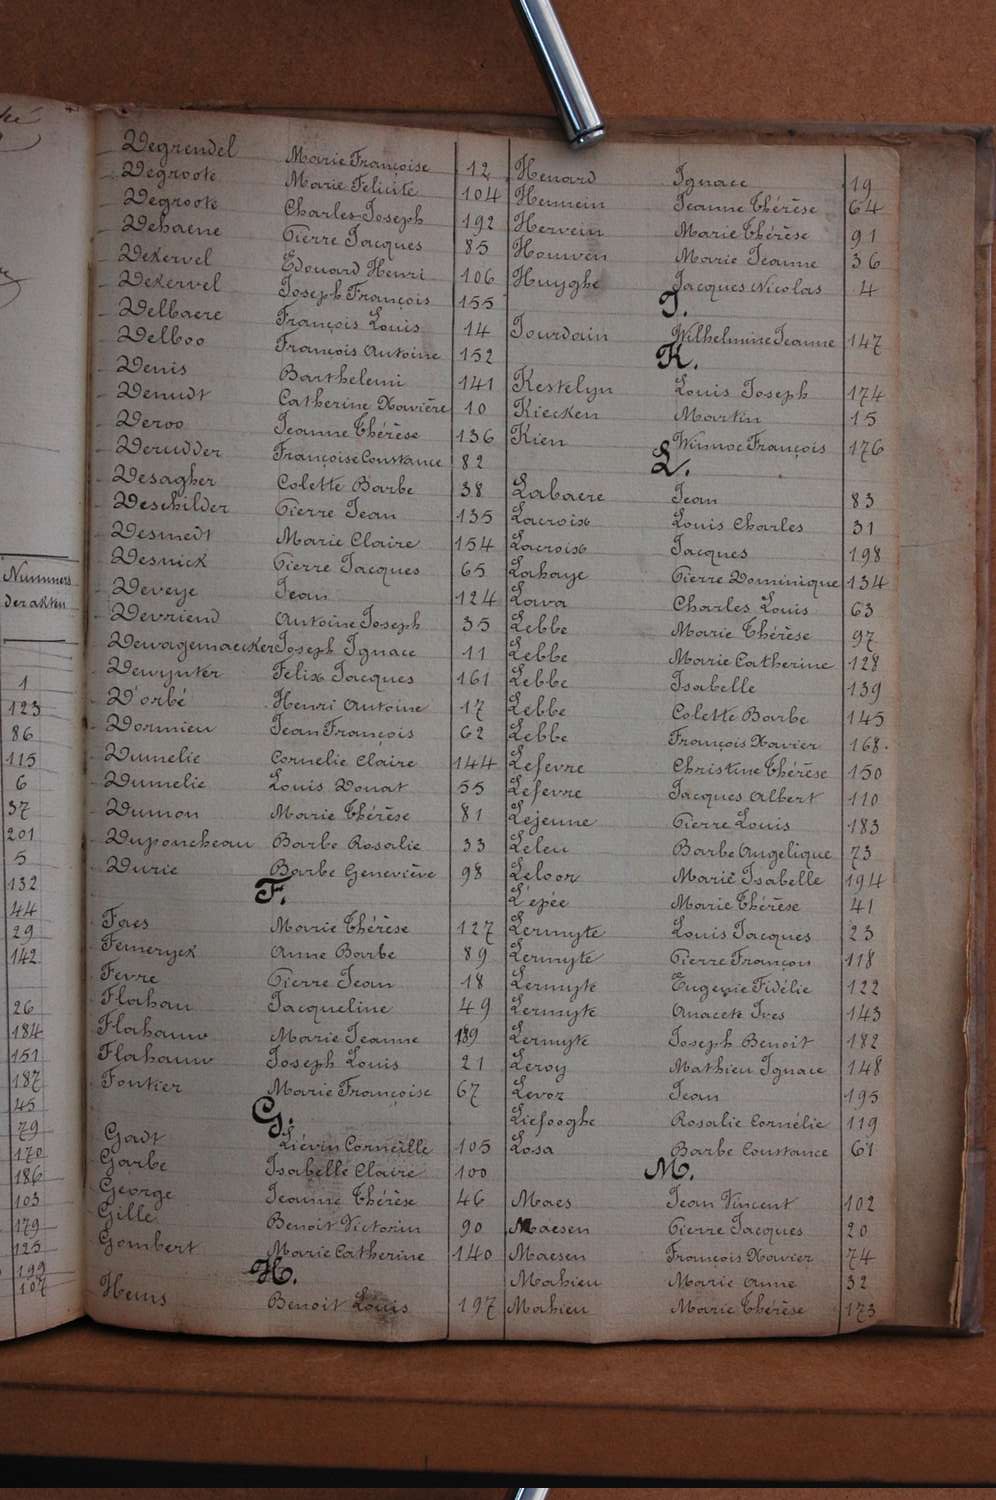 Nummers
der akten
1
123
86
115
6
37
201
5
132
44
29
142
26
184
151
187
45
79
170
186
103
179
125
199
107
Degrendel Marie Françoise 12
Degroote Marie Felicité 104
Degroote Charles Joseph 192
Dehaene Pierre Jacques 85
Dekervel Edouard Henri 106
Dekervel Joseph François 155
Delbaere François Louis 14
Delboo François Antoine 152
Denis Barthelemi 141
Denudt Catherine Xavière 10
Deroo Jeanne Thérèse 136
Derudder Françoise Constance 82
Desagher Colette Barbe 38
Deschilder Pierre Jean 135
Desmedt Marie Claire 154
Desnick Pierre Jacques 65
Deveye Jean 124
Devriend Antoine Joseph 35
Dewagemaecker Joseph Ignace 11
Dewynter Felix Jacques 161
D'orbé Henri Antoine 17
Dormieu Jean François 62
Dumelie Cornelie Claire 144
Dumelie Louis Donat 55
Dumon Marie Thérèse 81
Duponcheau Barbe Rosalie 33
Durie Barbe Geneviève 98
F.
Faes Marie Thérèse 127
Femeryck Anne Barbe 89
Fevre Pierre Jean 18
Flahau Jacqueline 49
Flahauw Marie Jeanne 189
Flahauw Joseph Louis 21
Foutier Marie Françoise 67
G.
Gadt Liévin Corneille 105
Garbe Isabelle Claire 100
George Jeanne Thérèse 46
Gille Benoit Victorin 90
Gombert Marie Catherine 140
H.
Hems Benoit Louis 197
Henard Ignace 19
Hennein Jeanne Thérèse 64
Hervein Marie Thérèse 91
Houwen Marie Jeanne 36
Huyghe Jacques Nicolas 4
J.
Jourdain Wilhelmine Jeanne 147
K.
Kestelyn Louis Joseph 174
Kiecken Martin 15
Kien Winnoc François 176
L.
Labaere Jean 83
Lacroix Louis Charles 31
Lacroix Jacques 198
Lahaye Pierre Dominique 134
Lava Charles Louis 63
Lebbe Marie Thérèse 97
Lebbe Marie Catherine 128
Lebbe Isabelle 139
Lebbe Colette Barbe 145
Lebbe François Xavier 168.
Lefevre Christine Thérèse 150
Lefevre Jacques Albert 110
Lejeune Pierre Louis 183
Leleu Barbe Angelique 73
Leloor Marie Isabelle 194
L'épée Marie Thérèse 41
Lermyte Louis Jacques 23
Lermyte Pierre François 118
Lermyte Eugenie Fidélie 122
Lermyte Anaceté Ives 143
Lermyte Joseph Benoit 182
Leroy Mathieu Ignace 148
Levor Jean 195
Liefooghe Rosalie Cornélie 119
Losa Barbe Constance 61
M.
Maes Jean Vincent 102
Maesen Pierre Jacques 20
Maesen François Xavier 74
Mahieu Marie Anne 32
Mahieu Marie Thérèse 173